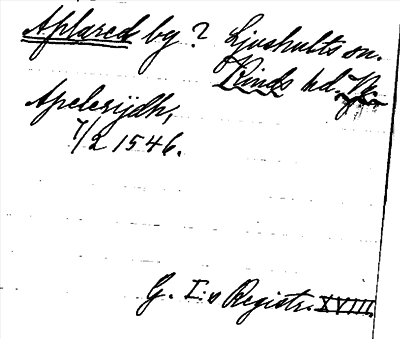 Aplared bg? Ljushults sn.
Kinds hd.
Apelerijdh,
7/2 1546.
G. I:s Registr. XVIII.